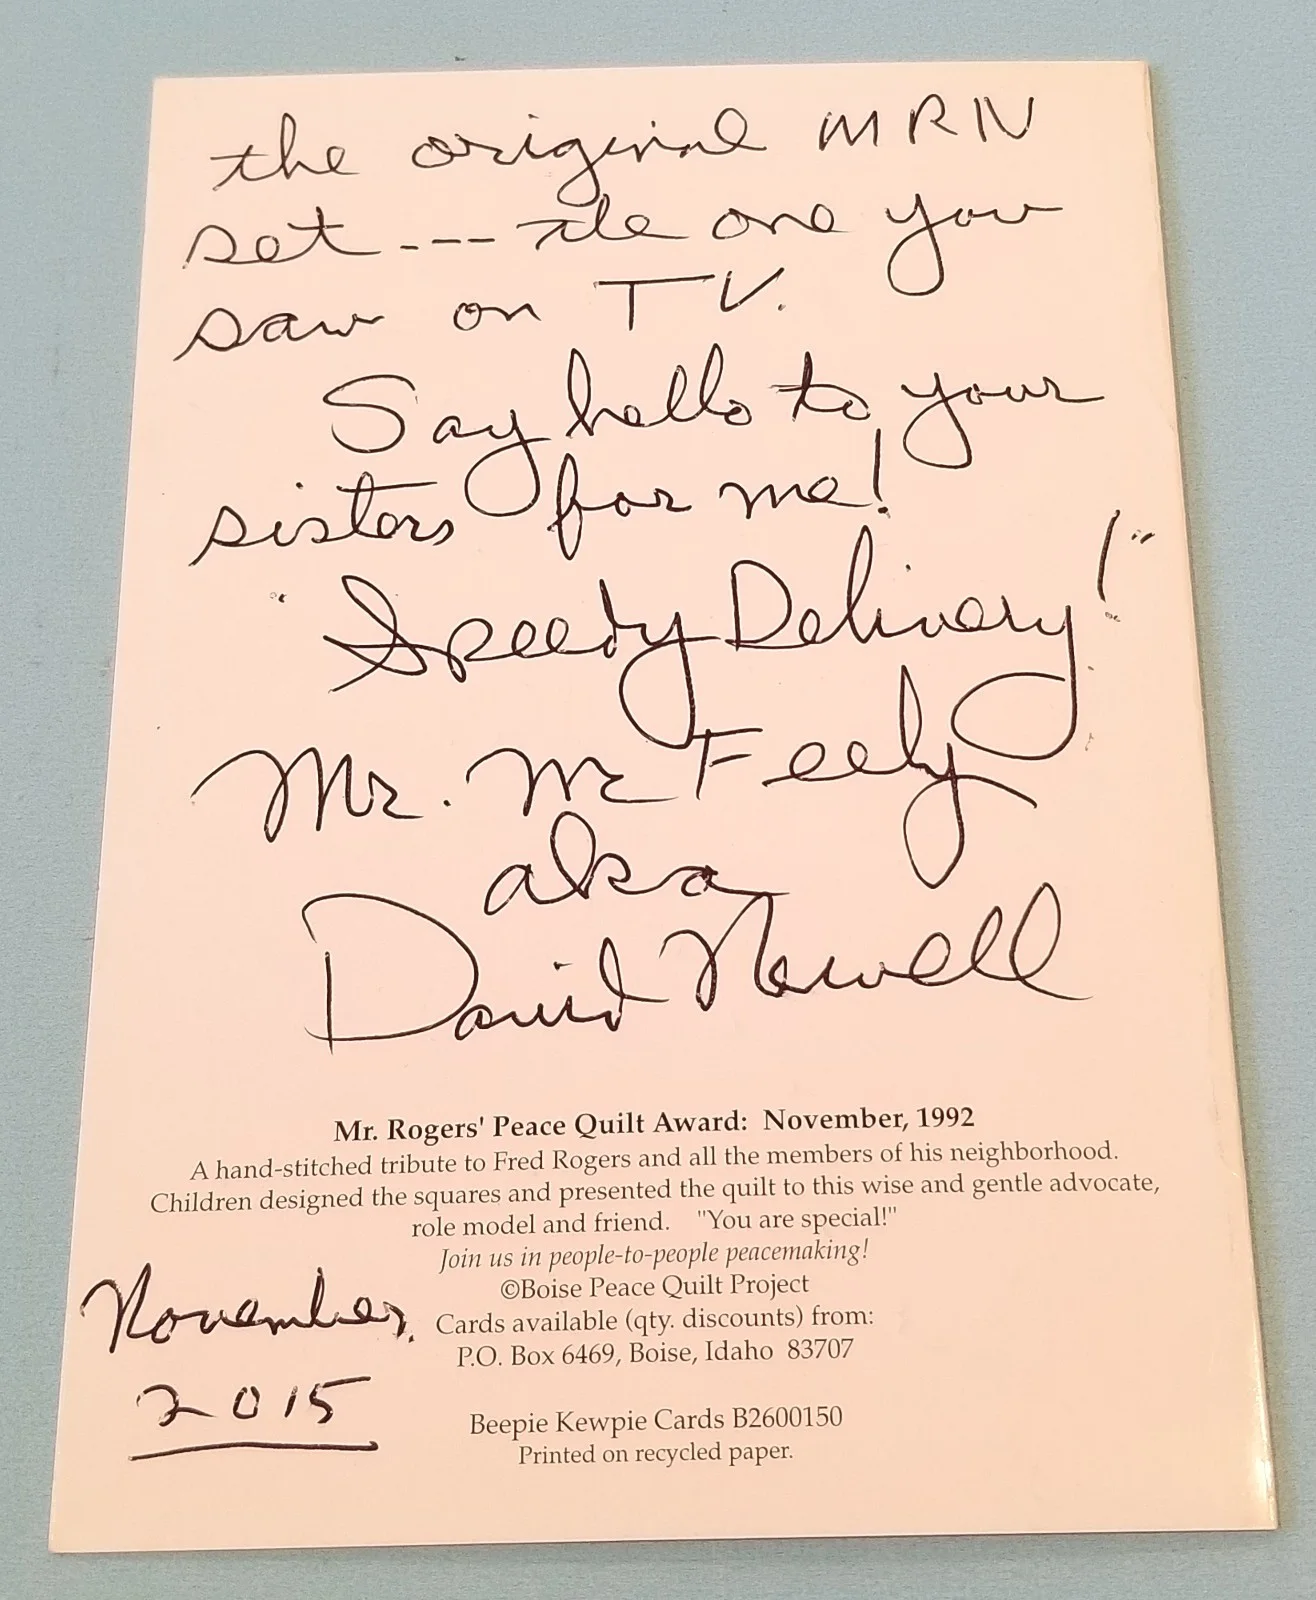 the original MRN
set --- the one you
saw on TV.
Say hello to your
sisters for me!
"Speedy Delivery!"
Mr. McFeely
aka
David Newell
Mr. Rogers' Peace Quilt Award: November, 1992
A hand-stitched tribute to Fred Rogers and all the members of his neighborhood.
Children designed the squares and presented the quilt to this wise and gentle advocate,
role model and friend. "You are special!"
Join us in people-to-people peacemaking!
©Boise Peace Quilt Project
Cards available (qty. discounts) from:
P.O. Box 6469, Boise, Idaho 83707
November,
2015
Beepie Kewpie Cards B2600150
Printed on recycled paper.